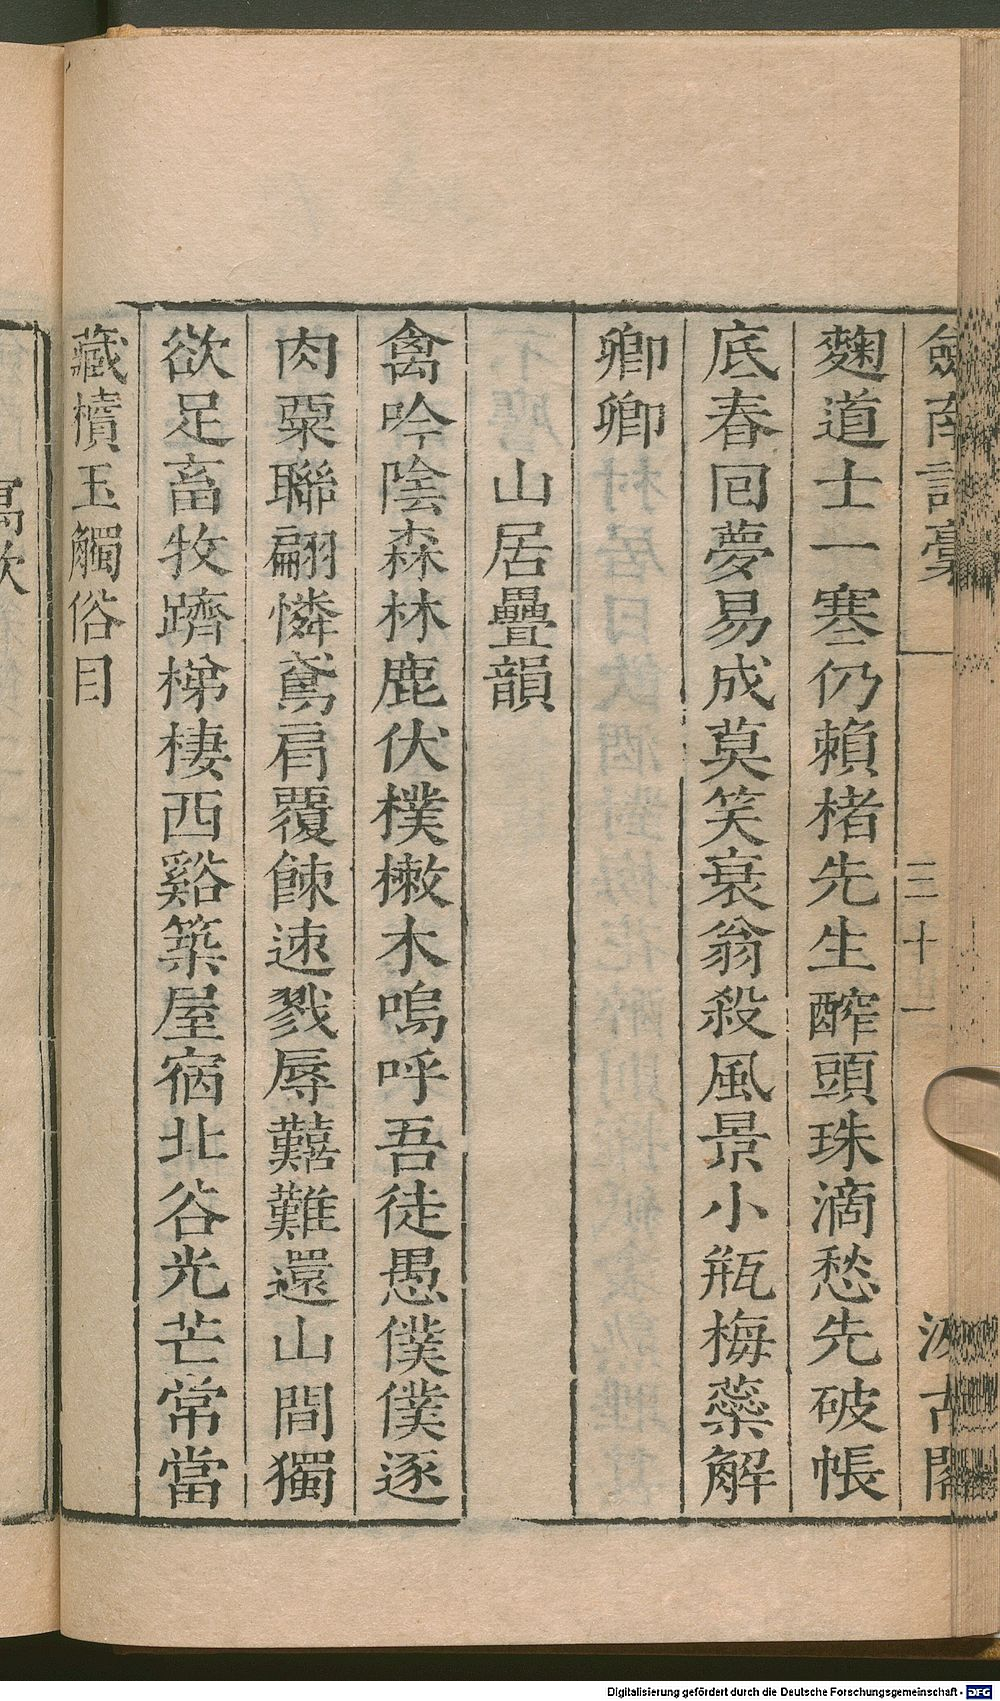 劍南詩稾
三十一
汲古閣
麴道士一寒仍賴楮先生醡頭珠滴愁先破帳
底春回夢易成莫笑衰翁殺風景小瓶梅蘂解
卿卿
山居疊韻
禽吟陰森林鹿伏樸樕木嗚呼吾徒愚僕僕逐
肉粟聯翩憐鳶肩覆餗速戮辱囏難還山間獨
欲足畜牧躋梯棲西谿築屋宿北谷光芒常當
藏櫝玉觸俗目
Digitalisierung gefördert durch die Deutsche Forschungsgemeinschaft - DFG